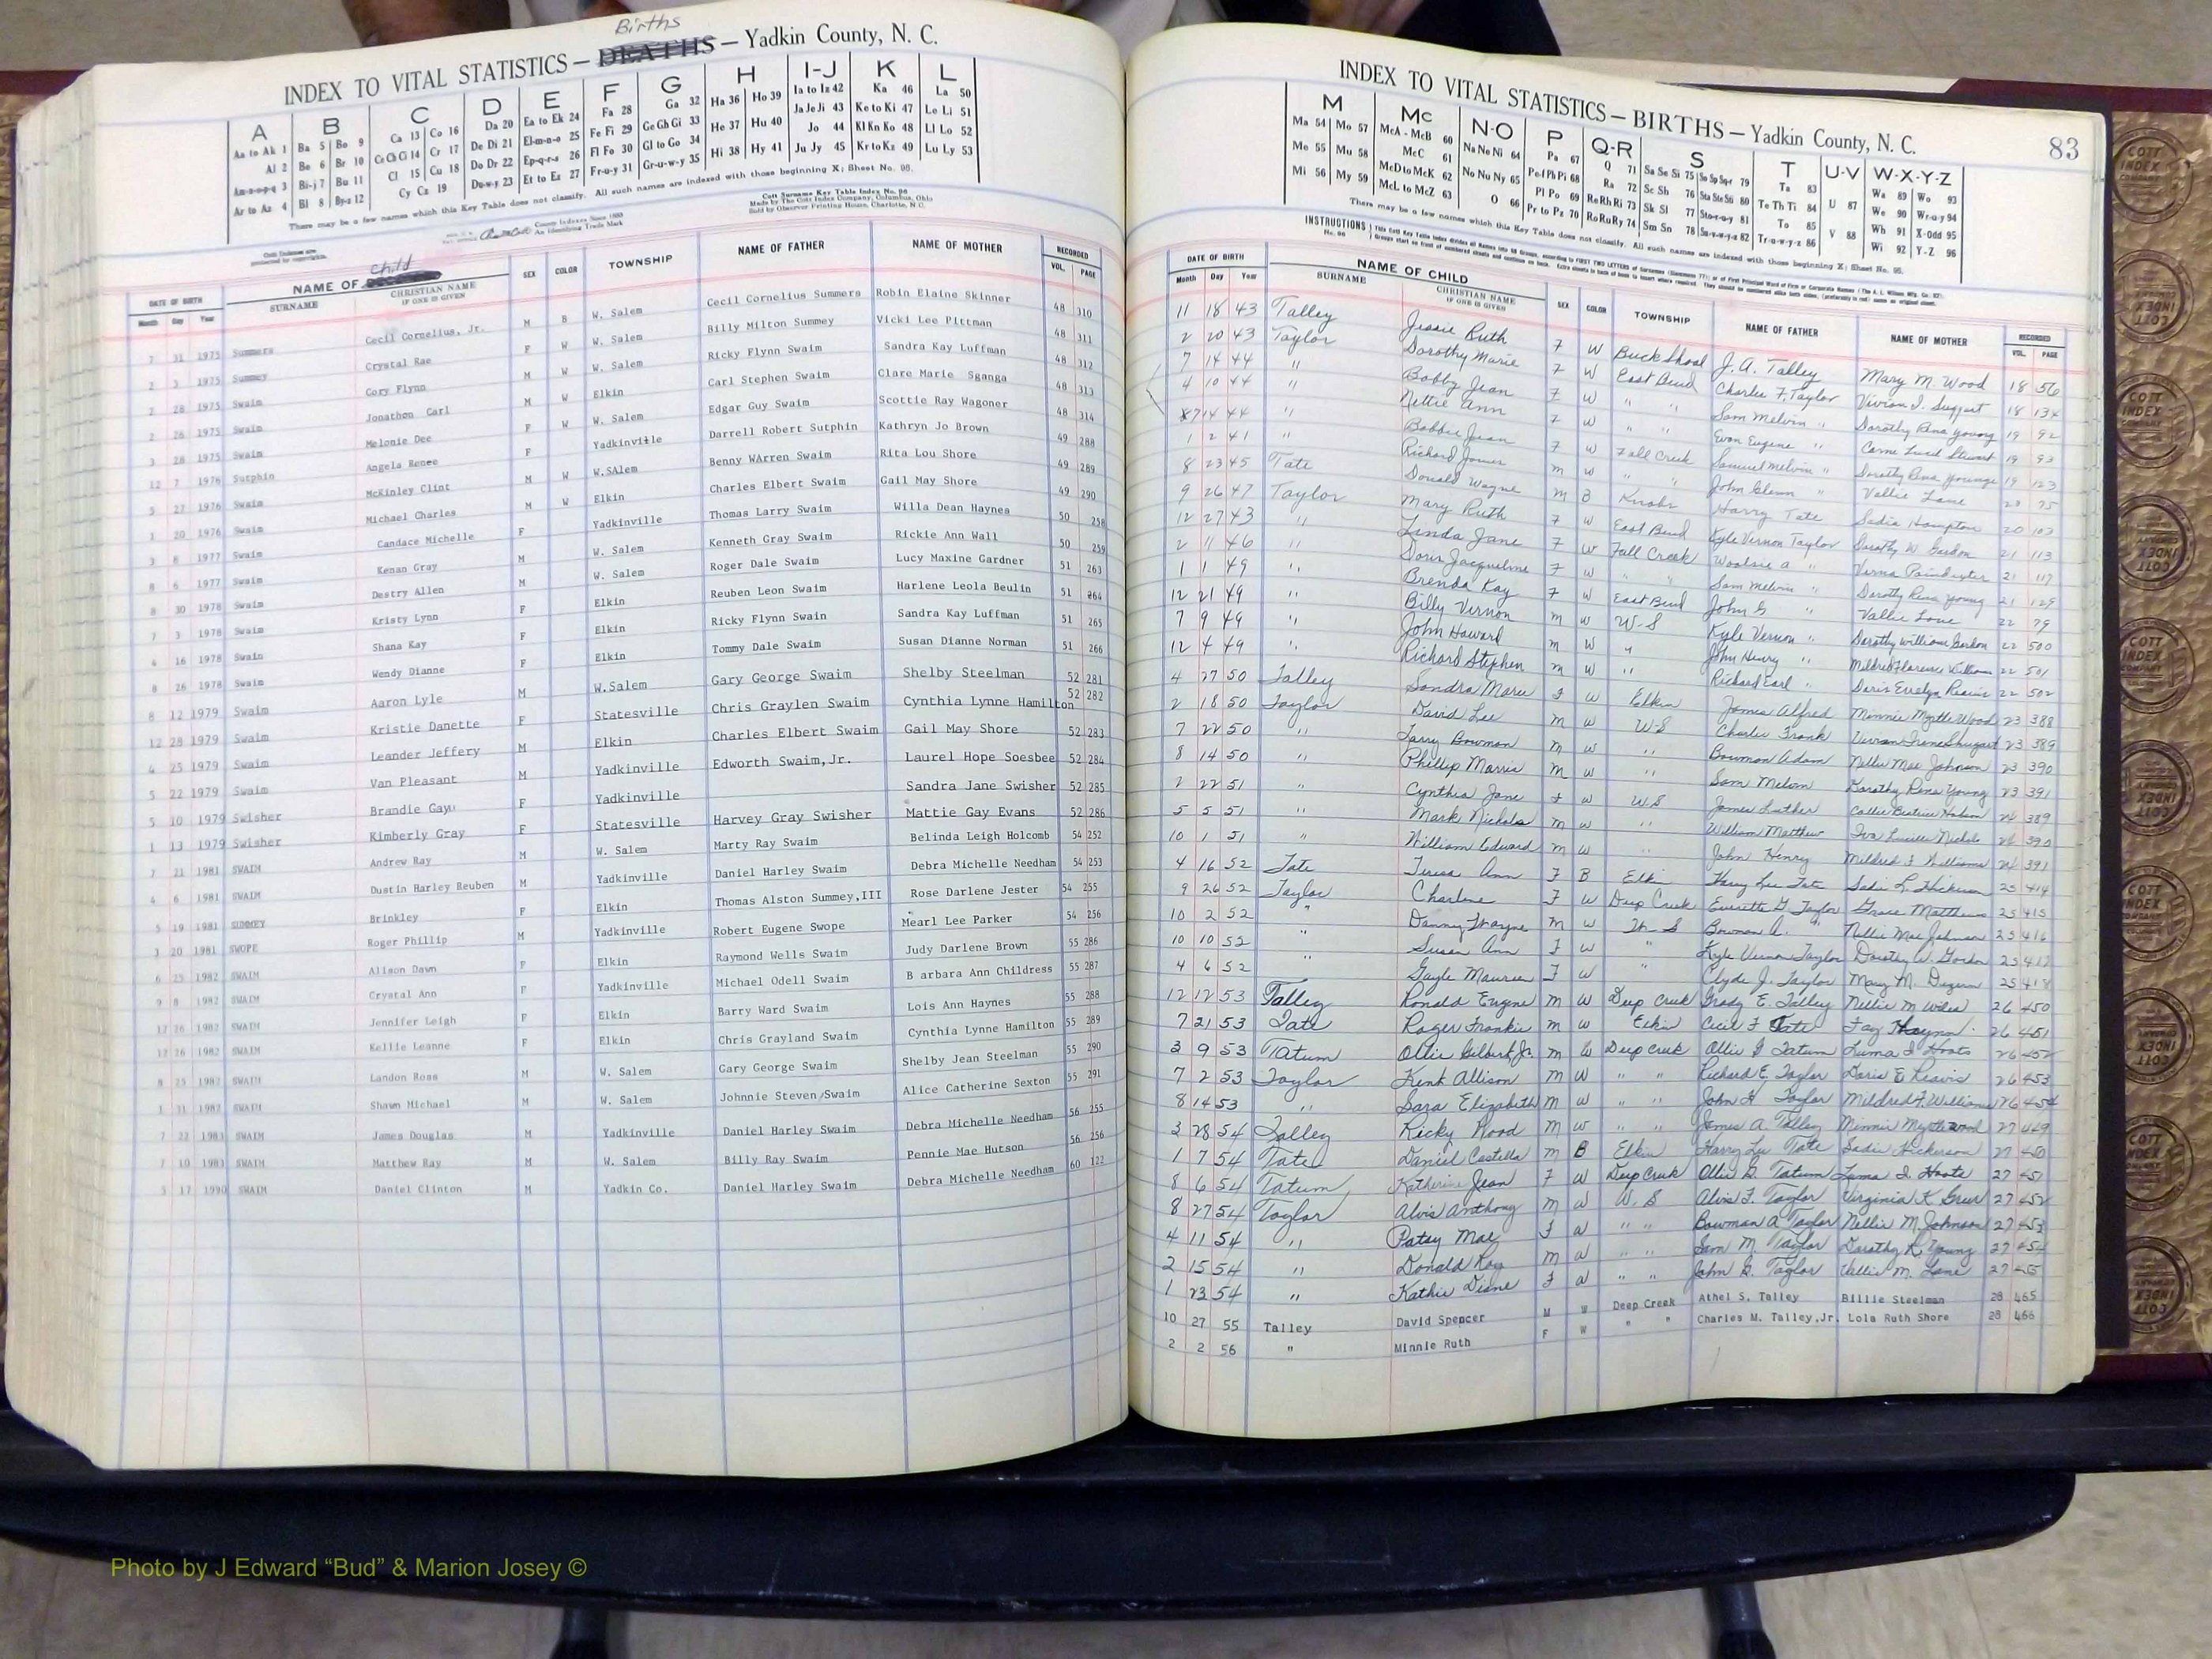 Births
INDEX TO VITAL STATISTICS — DEATHS — Yadkin County, N. C.
A B C D E F G H I-J K L
Aa to Ak 1 Ba 5 Bo 9 Ca 13 Co 16 Da 20 Ea to Ek 24 Fa 28 Ga 32 Ha 36 Ho 39 Ia to Iz 42 Ka 46 La 50
Al 2 Be 6 Br 10 Ce Ch Ci 14 Cr 17 De Di 21 El-m-n-o 25 Fe Fi 29 Ge Gh Gi 33 He 37 Hu 40 Ja Je Ji 43 Ke to Ki 47 Le Li 51
Am-n-o-p-q 3 Bi-j 7 Bu 11 Cl 15 Cu 18 Do Dr 22 Ep-q-r-s 26 Fl Fo 30 Gl to Go 34 Hi 38 Hy 41 Jo 44 Kl Kn Ko 48 Ll Lo 52
Ar to Az 4 Bl 8 By-z 12 Cy Cz 19 Du-w-y 23 Et to Ez 27 Fr-u-y 31 Gr-u-w-y 35 Ju Jy 45 Kr to Kz 49 Lu Ly 53
There may be a few names which this Key Table does not classify. All such names are indexed with those beginning X; Sheet No. 95.
Cott Surname Key Table Index No. 96
Made by The Cott Index Company, Columbus, Ohio
Sold by Observer Printing House, Charlotte, N. C.
County Indexes Since 1888
An Identifying Trade Mark
DATE OF BIRTH NAME OF Child SEX COLOR TOWNSHIP NAME OF FATHER NAME OF MOTHER RECORDED
Month Day Year SURNAME CHRISTIAN NAME IF ONE IS GIVEN VOL. PAGE
7 31 1975 Summers Cecil Cornelius, Jr. M B W. Salem Cecil Cornelius Summers Robin Elaine Skinner 48 310
2 3 1975 Summey Crystal Rae F W W. Salem Billy Milton Summey Vicki Lee Pittman 48 311
7 28 1975 Swaim Cory Flynn M W W. Salem Ricky Flynn Swaim Sandra Kay Luffman 48 312
2 26 1975 Swaim Jonathon Carl M W Elkin Carl Stephen Swaim Clare Marie Sganga 48 313
3 28 1975 Swaim Melonie Dee F W W. Salem Edgar Guy Swaim Scottie Ray Wagoner 48 314
12 7 1976 Sutphin Angela Renee F Yadkinville Darrell Robert Sutphin Kathryn Jo Brown 49 288
5 27 1976 Swaim McKinley Clint M W W.SAlem Benny WArren Swaim Rita Lou Shore 49 289
1 20 1976 Swaim Michael Charles M W Elkin Charles Elbert Swaim Gail May Shore 49 290
3 8 1977 Swaim Candace Michelle F Yadkinville Thomas Larry Swaim Willa Dean Haynes 50 258
8 6 1977 Swaim Kenan Gray M W. Salem Kenneth Gray Swaim Rickie Ann Wall 50 259
8 30 1978 Swaim Destry Allen M W. Salem Roger Dale Swaim Lucy Maxine Gardner 51 263
7 3 1978 Swaim Kristy Lynn F Elkin Reuben Leon Swaim Harlene Leola Beulin 51 264
4 16 1978 Swaim Shana Kay F Elkin Ricky Flynn Swaim Sandra Kay Luffman 51 265
8 26 1978 Swaim Wendy Dianne F Elkin Tommy Dale Swaim Susan Dianne Norman 51 266
8 12 1979 Swaim Aaron Lyle M W.Salem Gary George Swaim Shelby Steelman 52 281
12 28 1979 Swaim Kristie Danette F Statesville Chris Graylen Swaim Cynthia Lynne Hamilton 52 282
4 25 1979 Swaim Leander Jeffery M Elkin Charles Elbert Swaim Gail May Shore 52 283
5 22 1979 Swaim Van Pleasant M Yadkinville Edworth Swaim,Jr. Laurel Hope Soesbee 52 284
5 10 1979 Swisher Brandie Gay F Yadkinville Sandra Jane Swisher 52 285
1 13 1979 Swisher Kimberly Gray F Statesville Harvey Gray Swisher Mattie Gay Evans 52 286
7 21 1981 SWAIM Andrew Ray M W. Salem Marty Ray Swaim Belinda Leigh Holcomb 54 252
4 6 1981 SWAIM Dustin Harley Reuben M Yadkinville Daniel Harley Swaim Debra Michelle Needham 54 253
5 19 1981 SUMMEY Brinkley F Elkin Thomas Alston Summey,III Rose Darlene Jester 54 255
3 20 1981 SWOPE Roger Phillip M Yadkinville Robert Eugene Swope Mearl Lee Parker 54 256
6 25 1982 SWAIM Alison Dawn F Elkin Raymond Wells Swaim Judy Darlene Brown 55 286
9 8 1982 SWAIM Crystal Ann F Yadkinville Michael Odell Swaim B arbara Ann Childress 55 287
12 26 1982 SWAIM Jennifer Leigh F Elkin Barry Ward Swaim Lois Ann Haynes 55 288
12 26 1982 SWAIM Kellie Leanne F Elkin Chris Grayland Swaim Cynthia Lynne Hamilton 55 289
8 25 1982 SWAIM Landon Ross M W. Salem Gary George Swaim Shelby Jean Steelman 55 290
1 31 1982 SWAIM Shawn Michael M W. Salem Johnnie Steven Swaim Alice Catherine Sexton 55 291
7 22 1983 SWAIM James Douglas M Yadkinville Daniel Harley Swaim Debra Michelle Needham 56 255
7 10 1983 SWAIM Matthew Ray M W. Salem Billy Ray Swaim Pennie Mae Hutson 56 256
5 17 1990 SWAIM Daniel Clinton M Yadkin Co. Daniel Harley Swaim Debra Michelle Needham 60 122
INDEX TO VITAL STATISTICS — BIRTHS — Yadkin County, N. C. 83
M Mc N-O P Q-R S T U-V W-X-Y-Z
Ma 54 Mo 57 McA - McB 60 Na Ne Ni 64 Pa 67 Q 71 Sa Se Si 75 So Sp Sq-r 79 Ta 83 U 87 Wa 89 Wo 93
Me 55 Mu 58 McC 61 No Nu Ny 65 Pe-f Ph Pi 68 Ra 72 Sc Sh 76 Sta Ste Sti 80 Te Th Ti 84 V 88 We 90 Wr-u-y 94
Mi 56 My 59 McD to McK 62 O 66 Pl Po 69 Re Rh Ri 73 Sk Sl 77 Sto-r-u-y 81 To 85 Wh 91 X-Odd 95
McL to McZ 63 Pr to Pz 70 Ro Ru Ry 74 Sm Sn 78 Su-v-w-y-z 82 Tr-u-w-y-z 86 Wi 92 Y-Z 96
There may be a few names which this Key Table does not classify. All such names are indexed with those beginning X; Sheet No. 95.
INSTRUCTIONS
DATE OF BIRTH NAME OF CHILD SEX COLOR TOWNSHIP NAME OF FATHER NAME OF MOTHER RECORDED
Month Day Year SURNAME CHRISTIAN NAME (IF ONE IS GIVEN) VOL. PAGE
11 18 43 Talley Jessie Ruth F W Buck Shoal J. A. Talley Mary M. Wood 18 56
2 20 43 Taylor Dorothy Marie F W East Bend Charlie F. Taylor Vivian I. 18 134
7 14 44 " Bobby Jean F W " " Sam Melvin " Dorothy Rena Young 19 92
4 10 44 " Nettie Ann F W " " Evan Eugene " 19 93
7 14 44 " Bobbie Jean F W Fall Creek Samuel Melvin " Dorothy Rena 19 123
1 2 41 " Richard M W " " John Glenn " Vallie Lane
8 23 45 Tate Donald Wayne M B Knobs Harry Tate Sadie Hampton 20 103
9 26 47 Taylor Mary Ruth F W East Bend Kyle Vernon Taylor Dorothy W. Gordon 21 113
12 27 43 " Linda Jane F W Fall Creek Woolsie A " Verna Poindexter 21 117
2 11 46 " Doris Jacqueline F W " " Sam Melvin " Dorothy Rena Young 21 129
1 1 49 " Brenda Kay F W East Bend John G " Vallie Lane 22 79
12 21 49 " Billy Vernon M W W-S Kyle Vernon " Dorothy William Gordon 22 500
7 9 49 " John Howard M W " John Henry " Mildred Florence Williams 22 501
12 4 49 " Richard Stephen M W " Richard Earl " Doris Evelyn Reavis 22 502
4 27 50 Talley Sandra Marie F W Elkin James Alfred Minnie Myrtle Wood 23 388
2 18 50 Taylor David Lee M W W-S Charlie Frank 23 389
7 22 50 " Larry Bowman M W " Bowman Adam Nellie Mae Johnson 23 390
8 14 50 " Phillip Morris M W " Sam Melvin Dorothy Rena Young 23 391
2 22 51 " Cynthia Jane F W W.S James Luther Callie Beatrice Hobson 24 389
5 5 51 " Mark Nichols M W " William Matthew Iva Lucille Nichols 24 390
10 1 51 " William Edward M W " John Henry Mildred F Williams 24 391
4 16 52 Tate Teresa Ann F B Elkin Harry Lee Tate Sadie L. Hickerson 25 414
9 26 52 Taylor Charlene F W Deep Creek Everette G Taylor Grace Matthews 25 415
10 2 52 " Danny Thayne M W W-S Bowman A. " Nellie Mae Johnson 25 416
10 10 52 " Susan Ann F W " Kyle Vernon Taylor Dorothy W. Gordon 25 417
4 6 52 Gayle Maureen F W " Clyde J. Taylor Mary M. 25 418
12 12 53 Talley Ronald Eugene M W Deep Creek Grady E. Talley Nellie M 26 450
7 21 53 Tate Roger Frankie M W Elkin Cecil F Tate Fay 26 451
3 9 53 Tatum Ollie Gilbert, Jr. M W Deep Creek Ollie G Tatum Luma I Hoots 26 452
7 2 53 Taylor Kent Allison M W " " Richard E. Taylor Doris E Reavis 26 453
8 14 53 " Sara Elizabeth M W " " John H Taylor Mildred F. Williams 26 454
3 28 54 Talley Ricky Hood M W " " James A Talley Minnie Myrtle Wood 27 449
1 7 54 Tate Daniel Costella M B Elkin Harry Lee Tate Sadie Hickerson 27 450
8 6 54 Tatum Katherine Jean F W Deep Creek Ollie G. Tatum Luma I. Hoots 27 451
8 27 54 Taylor Alvis Anthony M W W. S Alvis F. Taylor Virginia K. Greer 27 452
4 11 54 " Patsy Mae F W " " Bowman A Taylor Nellie M. Johnson 27 453
2 15 54 " Donald Ray M W " " Sam M. Taylor Dorothy R. Young 27 454
1 23 54 " Kathie Diane F W " " John G. Taylor Vallie M. Lane 27 455
10 27 55 Talley David Spencer M W Deep Creek Athel S. Talley Billie Steelman 28 465
2 2 56 " Minnie Ruth F W " " Charles M. Talley,Jr. Lola Ruth Shore 28 466
Photo by J Edward “Bud” & Marion Josey ©